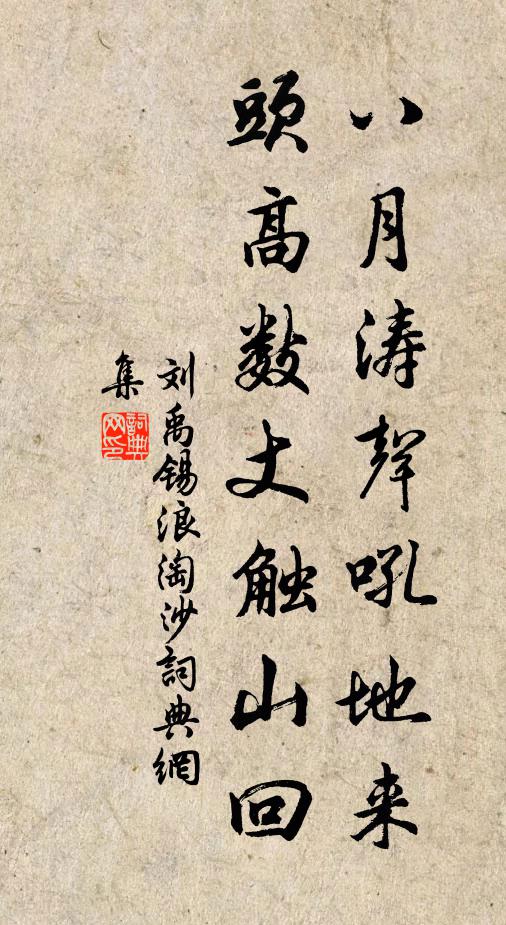 八月涛聲吼地来
頭高数丈触山回
刘禹锡浪淘沙詞典網
集
詞典网印